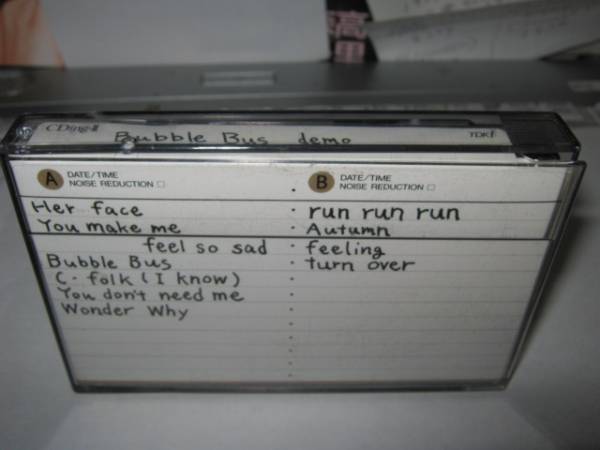 CDing-II Bubble Bus demo TDK
A DATE/TIME NOISE REDUCTION □
B DATE/TIME NOISE REDUCTION □
Her face
You make me
feel so sad
Bubble Bus
C. folk (I know)
You don't need me
Wonder Why
· run run run
· Autumn
· feeling
· turn over